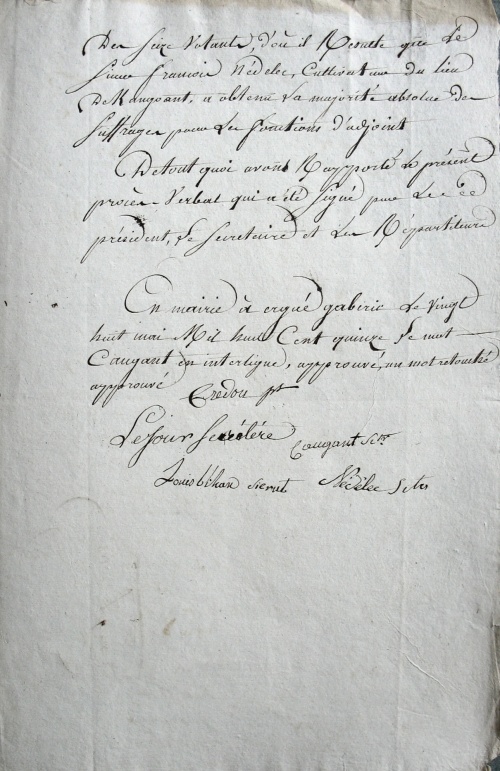 Des Seize Votants, d'où il Resulte que Le
Sieur francois Nédelec, Cultivateur du lieu
De Kaugoant, a obtenu La majorité absolue des
Suffrages pour Les fonctions d'adjoint
De tout quoi avons Rapporté le présent
procès-Verbal qui a été Signé par Le
président, Le Secretaire et Les Répartiteurs
En mairie à ergué gaberic Le vingt
huit mai Mil huit Cent quinze Le mot
Caugant en interligne, approuvé, un mot retouché
approuvé
Credou pt
LeJour Secrétére
Caugant
Louis bihan
Nédelec